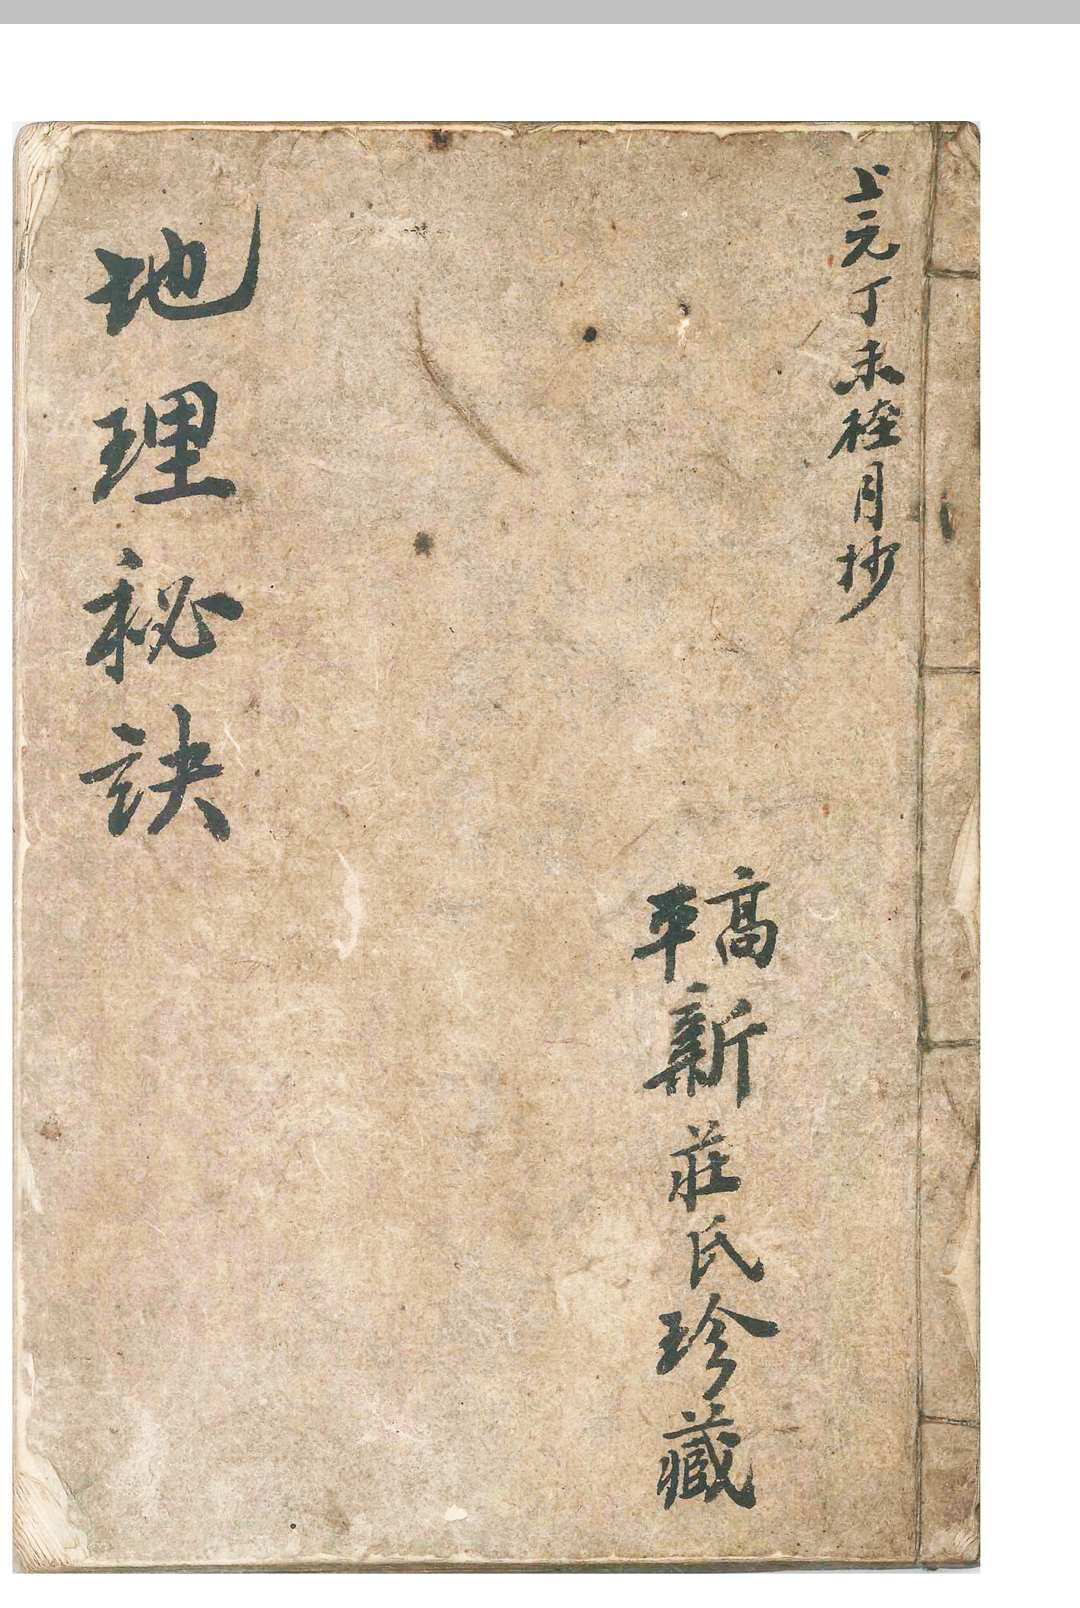 上元丁未桂月抄
高平新莊氏珍藏
地理秘訣